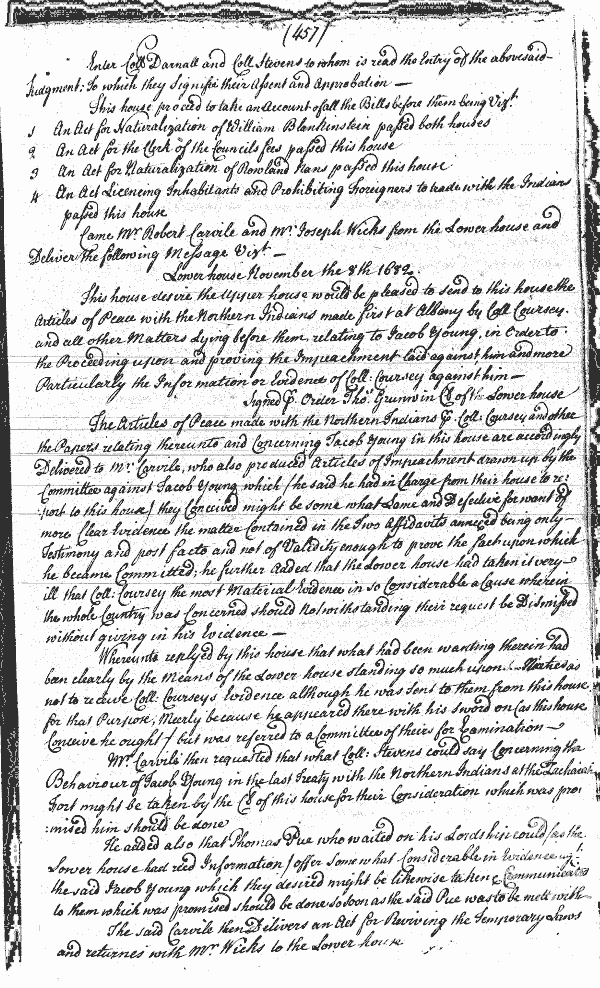 (457)
Enter Coll Darnall and Coll Stevens to whom is read the Entry of the abovesaid
Judgment: To which they Signifie their Assent and Approbation —
This house proceed to take an Account of all the Bills before them being Vizt.
1 An Act for Naturalization of William Blankinstein passed both houses
2 An Act for the Clerk of the Councils fees passed this house
3 An Act for Naturalization of Rowland Nans passed this house
4 An Act Licencing Inhabitants and Prohibiting Foreigners to trade with the Indians
passed this house
Came Mr. Robert Carvile and Mr. Joseph Wicks from the Lower house and
Deliver the following Message Vizt. —
Lower house November the 8th 1682.
This house desire the Upper house would be pleased to send to this house the
Articles of Peace with the Northern Indians made first at Albany by Coll Coursey.
and all other Matters Lying before them, relating to Jacob Young, in Order to
the Proceeding upon and proving the Impeachment laid against him and more
Particularly the Information or Evidence of Coll: Coursey against him —
Signed p. Order Tho: Grunwin Cl of the Lower house
The Articles of Peace made with the Northern Indians p. Coll: Coursey and other
the Papers relating thereunto and Concerning Jacob Young in this house are accordingly
Delivered to Mr. Carvile, who also produced Articles of Impeachment drawn up by the
Committee against Jacob Young which (he said he had in Charge from their house to re:
:port to this house) they Conceived might be some what Lame and Defective for want of
more Clear Evidence the matter Contained in the Two Affidavits annexed being only
Testimony and post facto and not of Validity enough to prove the fact upon which
he became Committed; he further Added that the Lower house had taken it very
ill that Coll: Coursey the most Material Evidence in so Considerable a Cause wherein
the whole Country was Concerned should Notwithstanding their request be Dismissed
without giving in his Evidence —
Whereunto replyed by this house that what had been wanting therein had
been clearly by the Means of the Lower house standing so much upon as
not to receive Coll: Courseys Evidence although he was sent to them from this house
for that Purpose, Meerly because he appeared there with his sword on (as this house
Conceive he ought) but was referred to a Committee of theirs for Examination —
Mr. Carvile then requested that what Coll: Stevens could say Concerning the
Behaviour of Jacob Young in the last Treaty with the Northern Indians at the Zachaiah
Fort might be taken by the Cl of this house for their Consideration which was pro:
:mised him should be done
He added also that Thomas Pue who waited on his Lordship could (as the
Lower house had reed Information) offer some what Considerable in Evidence agt.
the said Jacob Young which they desired might be likewise taken & Communicated
to them which was promised should be done so soon as the said Pue was to be mett with
The said Carvile then Delivers an Act for Reviving the Temporary Laws
and returnes with Mr. Wicks to the Lower house